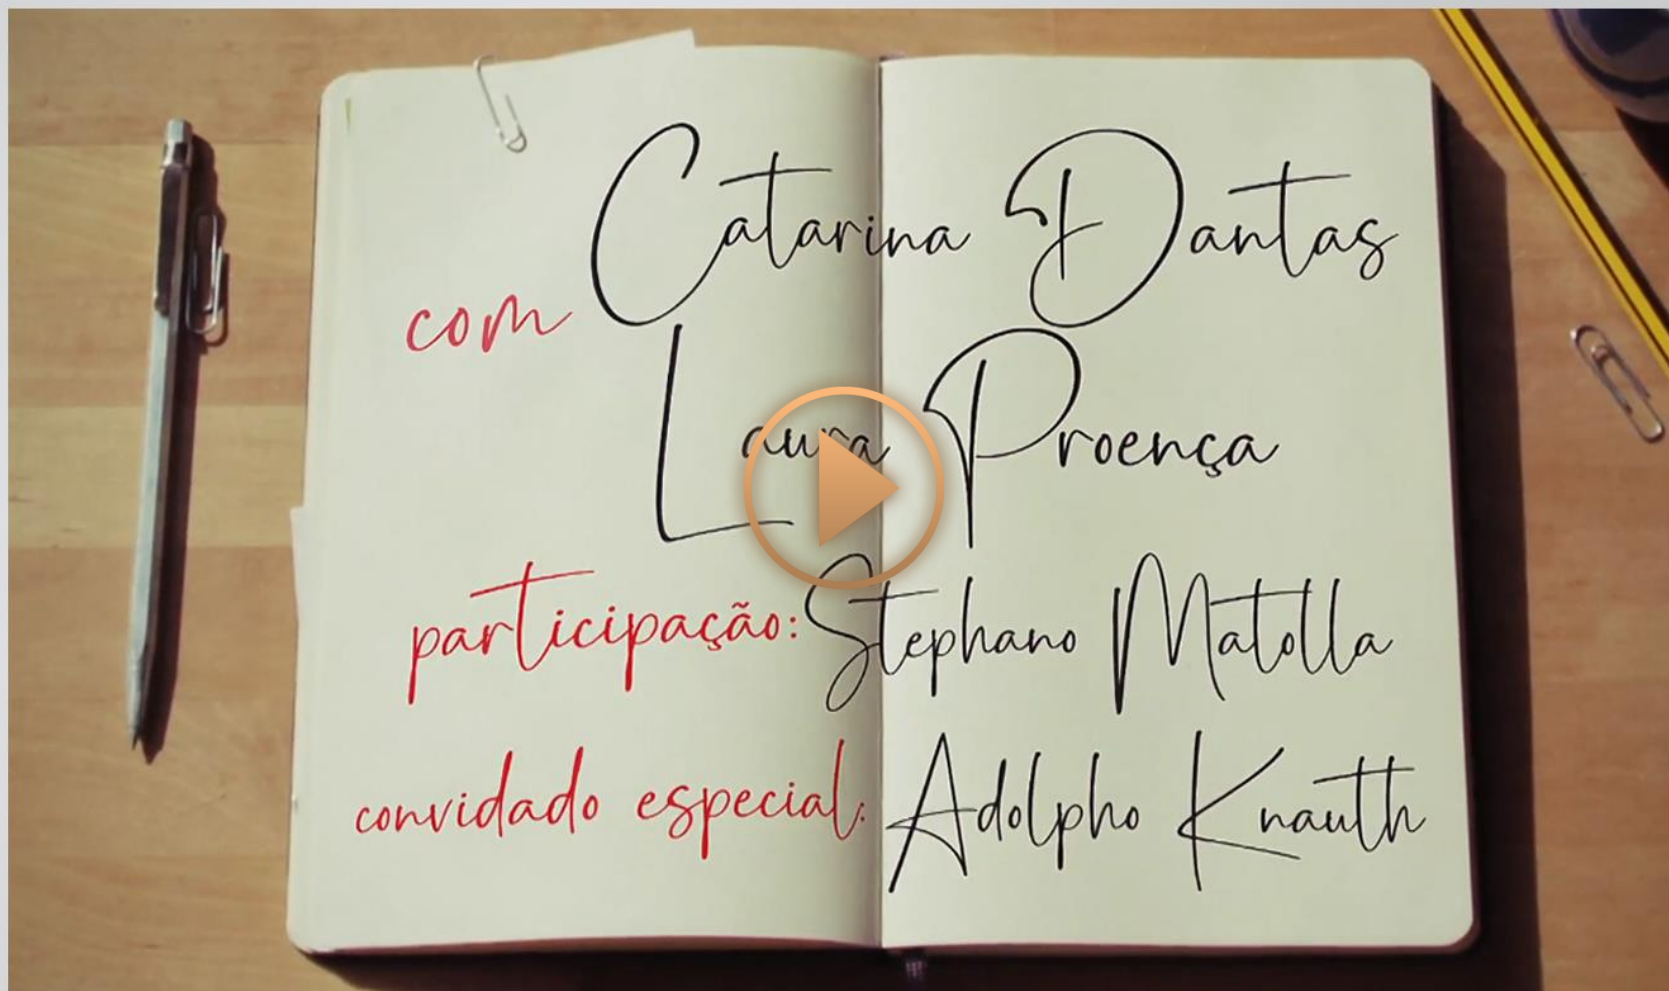 com
Catarina Dantas
Laura Proença
participação: Stephano Matolla
convidado especial: Adolpho Knauth